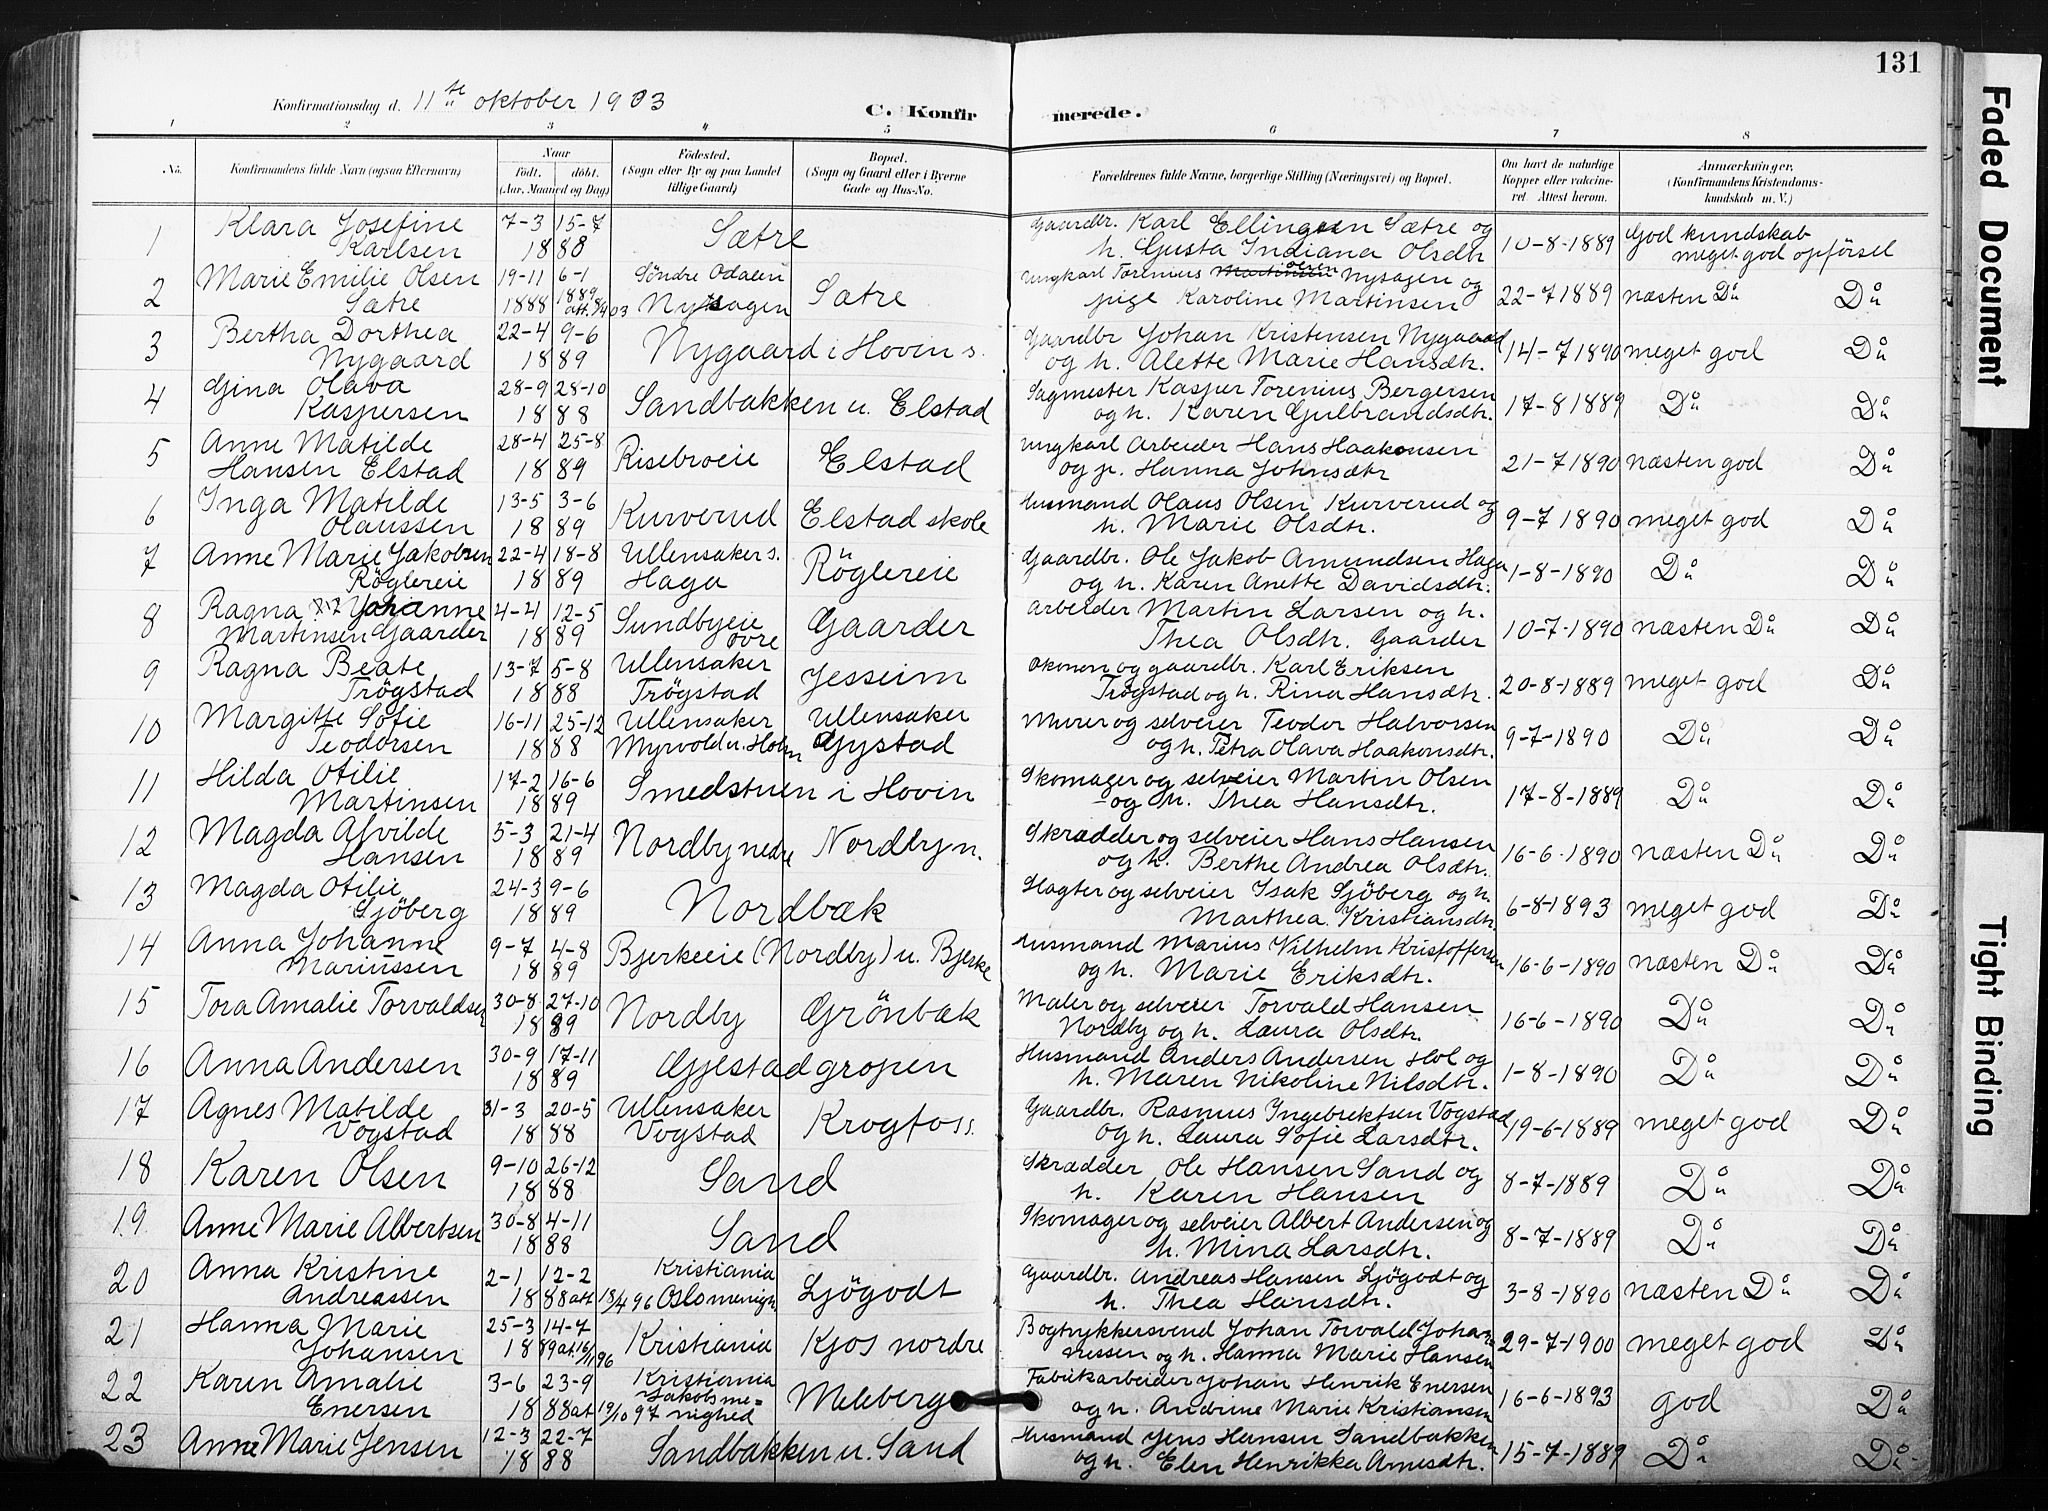 131
Konfirmationsdag d. 11te oktober 1903
C. Konfirmerede.
1 2 3 4 5 6 7 8
No. Konfirmandens fulde Navn (ogsaa Efternavn) Naar født. døbt. (Aar, Maaned og Dag) Fødested. (Sogn eller By og paa Landet tillige Gaard) Bopæl. (Sogn og Gaard eller i Byerne Gade og Hus-No. Forældrenes fulde Navne, borgerlige Stilling (Næringsvei) og Bopæl. Om havt de naturlige Kopper eller vakcineret. Attest herom. Anmærkninger. (Konfirmandens Kristendomskundskab m. V.)
1 Klara Josefine Karlsen 7-3 15-7 1888 Sætre Gaardbr. Karl Ellingsen Sætre og h. Gusta Indiana Olsdtr 10-8-1889 God kundskab meget god opførsel
2 Marie Emilie Olsen Sætre 19-11 1888 6-1 1889 att. 8/4 03 Søndre Odalen Nysagen Sætre ungkarl Torenius Nysagen og pige Karoline Martinsen 22-7 1889 næsten Do Do
3 Bertha Dorthea Nygaard 22-4 9-6 1889 Nygaard i Hovin s. Gaardbr Johan Kristensen Nygaard og h. Alette Marie Hansdtr. 14-7 1890 meget god Do
4 Gina Olava Kaspersen 28-9 28-10 1888 Sandbakken u. Elstad Sagmester Kasper Torenius Bergersen og h. Karen Gulbrandsdtr. 17-8 1889 Do Do
5 Anne Matilde Hansen Elstad 28-4 25-8 1889 Risebroeie Elstad ungkarl Arbeider Hans Haakonsen og p. Hanna Johnsdtr 21-7 1890 næsten god Do
6 Inga Matilde Olaussen 13-5 3-6 1889 Kurverud Elstad skole husmand Olaus Olsen Kurverud og h. Marie Olsdtr. 9-7 1890 meget god Do
7 Anne Marie Jakobsen Røglereie 22-4 18-8 1889 Ullensaker s. Haga Røglereie Gaardbr. Ole Jakob Amundsen Haga og h. Karen Anette Davidsdtr. 1-8-1890 Do Do
8 Ragna Johanne Martinsen Gaarder 4-4 12-5 1889 Sundbyeie øvre Gaarder arbeider Martin Larsen og h. Thea Olsdtr. Gaarder 10-7-1890 næsten Do Do
9 Ragna Beate Trøgstad 13-7 5-8 1888 Ullensaker Trøgstad Jesseim Økonom og gaardbr. Karl Eriksen Trøgstad og h. Rina Hansdtr. 20-8-1889 meget god Do
10 Margitte Sofie Teodorsen 16-11 25-12 1888 Ullensaker Myrvold u. Holm Ullensaker Gystad Murer og selveier Teodor Halvorsen og h. Petra Olava Haakonsdtr. 9-7-1890 Do Do
11 Hilda Otilie Martinsen 17-2 16-6 1889 Smedstuen i Hovin Skomager og selveier Martin Olsen og h. Thea Hansdtr. 17-8-1889 Do Do
12 Magda Alvilde Hansen 5-3 21-4 1889 Nordby nedre Nordby n. Skrædder og selveier Hans Hansen og h. Berthe Andrea Olsdtr. 16-6-1890 næsten Do Do
13 Magda Otilie Sjøberg 24-3 9-6 1889 Nordbæk Slagter og selveier Isak Sjøberg og h. Marthea Kristiansdtr. 6-8-1893 meget god Do
14 Anna Johanne Mariussen 9-7 4-8 1889 Bjerkeeie (Nordby) u. Bjerke husmand Marius Vilhelm Kristoffersen og h. Marie Eriksdtr. 16-6-1890 næsten Do Do
15 Tora Amalie Torvaldsen 30-8 27-10 1889 Nordby Grønbæk Maler og selveier Torvald Hansen Nordby og h. Laura Olsdtr. 16-6-1890 Do Do
16 Anna Andersen 30-9 17-11 1889 Gjestadgropen Husmand Anders Andersen Hol og h. Maren Nikoline Nilsdtr. 1-8-1890 Do Do
17 Agnes Matilde Vogstad 31-3 20-5 1888 Ullensaker Vogstad Krogfoss. Gaardbr. Rasmus Ingebrektsen Vogstad og h. Laura Sofie Larsdtr. 19-6-1889 meget god Do
18 Karen Olsen 9-10 26-12 1888 Sand Skrædder Ole Hansen Sand og h. Karen Hansen 8-7-1889 Do Do
19. Anne Marie Albertsen 30-8 4-11 1888 Sand Skomager og selveier Albert Andersen og h. Mina Larsdtr. 8-7-1889 Do Do
20 Anna Kristine Andreassen 2-1 12-2 1888 att. 18/4 96 Kristiania Oslo menigh. Ljøgodt Gaardbr. Andreas Hansen Ljøgodt og h. Thea Hansdtr. 3-8-1890 næsten Do Do
21 Hanna Marie Johansen 25-3 14-7 1889 at. 16/1 96 Kristiania Kjos nordre Bogtrykkersvend Johan Torvald Johannessen og h. Hanna Marie Hansen 29-7-1900 meget god Do
22 Karen Amalie Enersen 3-6 23-9 1888 at. 19/10 97 Kristiania Jakobsmenighed Meleberg Fabrikarbeider Johan Henrik Enersen og h. Andrine Marie Kristiansen 16-6-1893 god Do
23 Anne Marie Jensen 12-3 22-7 1888 Sandbakken u. Sand Husmand Jens Hansen Sandbakken og h. Elen Henrikka Arnesdtr. 15-7-1889 Do Do
Faded Document
Tight Binding